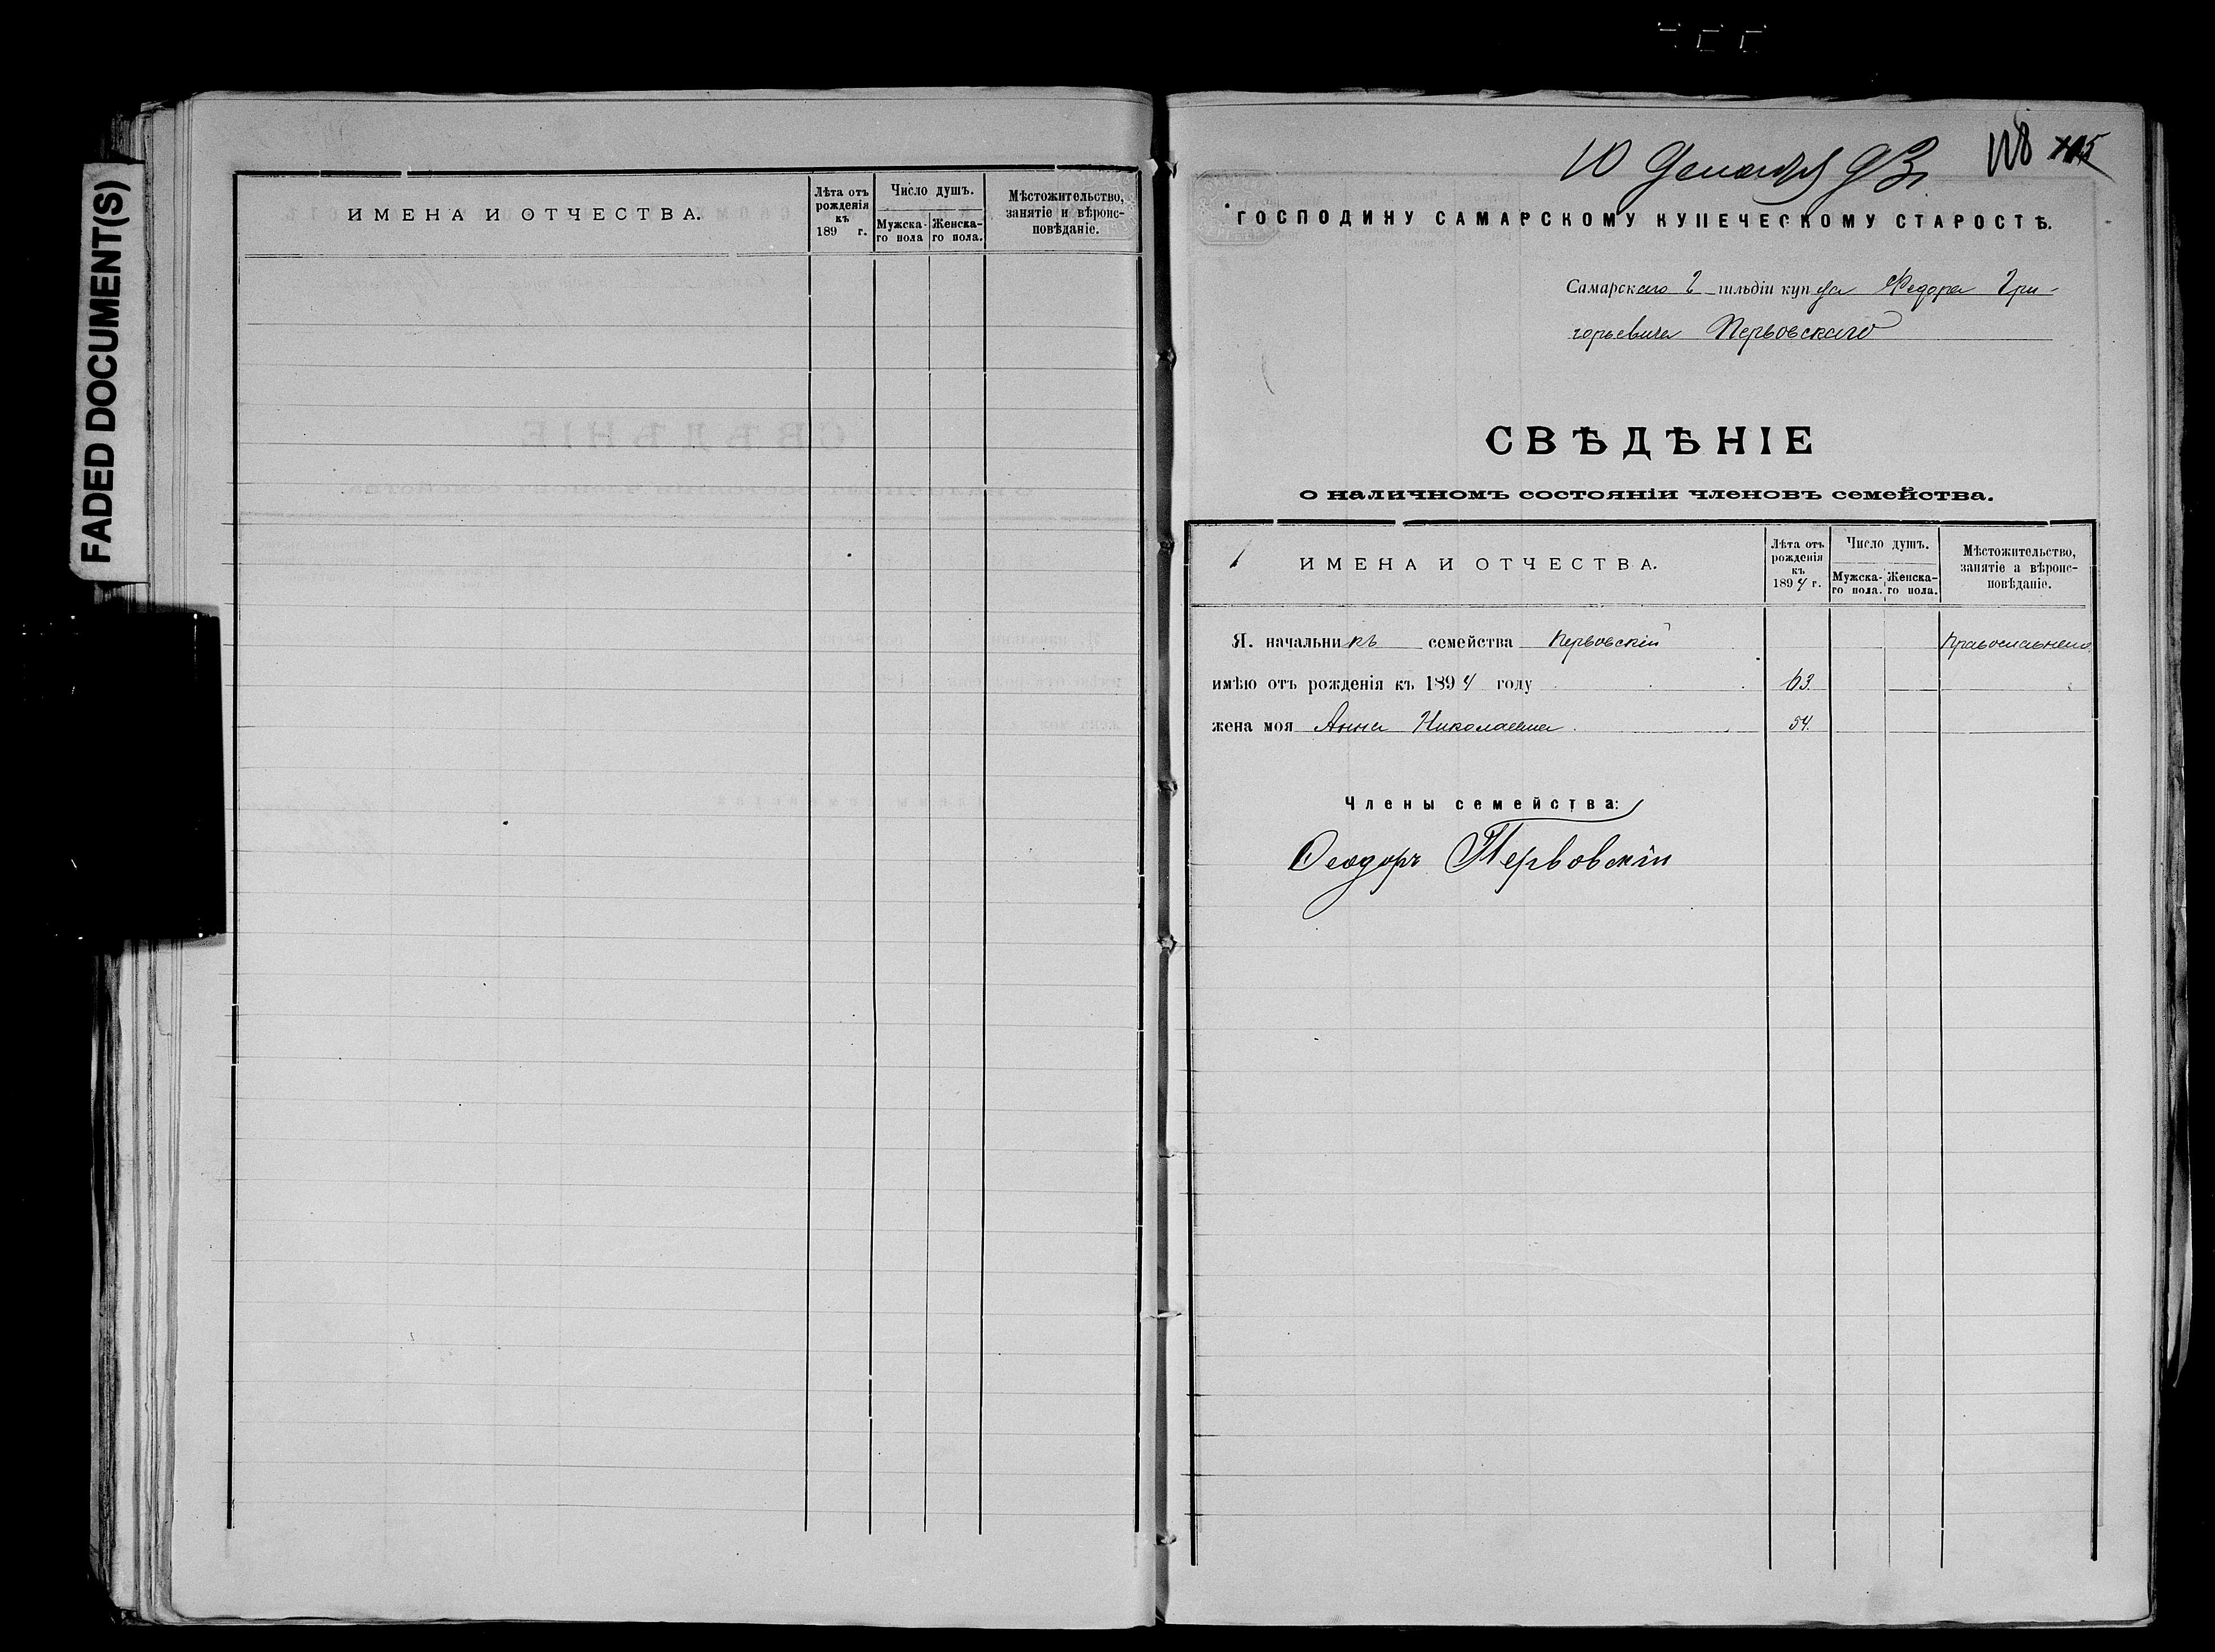 FADED DOCUMENT(S)
ИМЕНА И ОТЧЕСТВА.
Лѣта отъ рожденія къ 189 г.
Число душъ.
Мужска-го пола
Женска-го пола.
Мѣстожительство, занятіе и вѣроис-повѣданіе.
10 Декабря 93 г.
108 105
ГОСПОДИНУ САМАРСКОМУ КУПЕЧЕСКОМУ СТАРОСТѢ.
Самарскаго 2 гильдіи купца Федора Гри-
горьевича Перьвовскаго
СВѢДѢНІЕ
о наличномъ состояніи членовъ семейства.
ИМЕНА И ОТЧЕСТВА.
Лѣта отъ рожденія къ 1894 г.
Число душъ.
Мужска-го пола.
Женска-го пола.
Мѣстожительство, занятіе а вѣроис-повѣданіе.
Я. начальникъ семейства Перьвовскій Православнаго
имѣю отъ рожденія къ 1894 году 63.
жена моя Анна Николаевна 54.
Члены семейства:
Феодоръ Перьвовскій